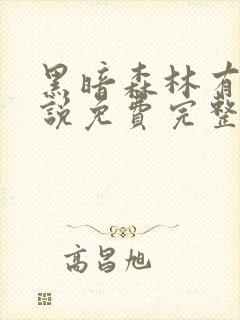 黑暗森林有
説免費完整
高昌旭